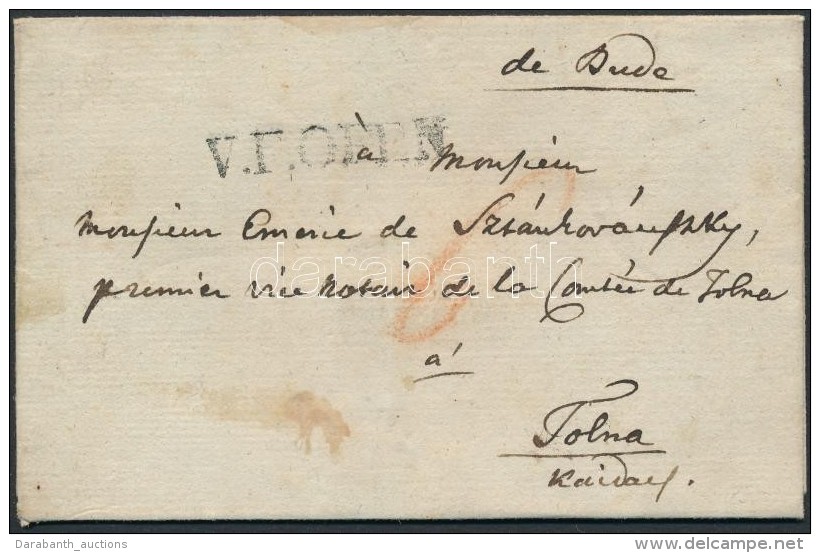 de Bude
V.T.OFEN
à Monsieur
Monsieur Emerie de Sztánkovánszky,
darabanth
premier vice notair de la Comtée de Tolna
à
Tolna
Kaidacs.
Darabanth_auctions
delcampe.net